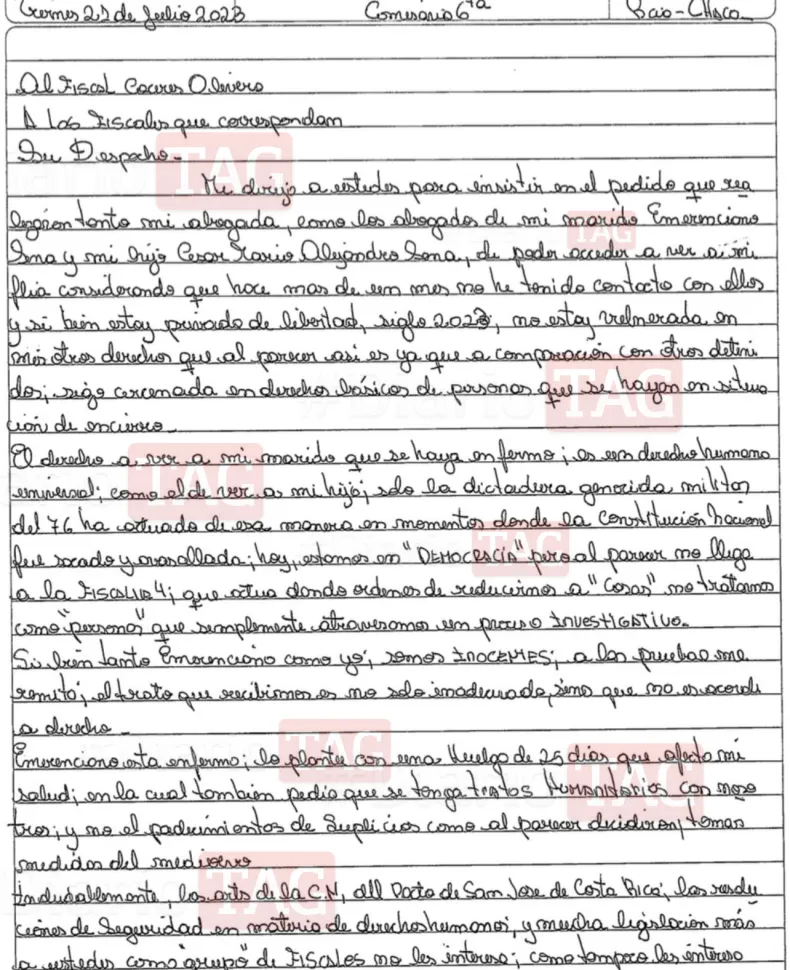 Viernes 21 de Julio 2023 Comisaria 6ta Rcia-CHaco
Al Fiscal Caceres Olivera
A Los Fiscales que correspondan
Su Despacho-
Me dirijo a ustedes para insistir en el pedido que rea
lizaron tanto mi abogada, como los abogados de mi marido Emerenciano
Sena y mi hijo Cesar Mario Alejandro Sena, de poder acceder a ver a mi
flia considerando que hace mas de un mes no he tenido contacto con ellos
y si bien estoy privada de libertad, siglo 2023, no estoy vulnerada en
mis otros derechos que al parecer asi es ya que a comparación con otros deteni
dos; sigo cercenada en derechos básicos de personas que se hayan en situa
ción de encierro-
El derecho a ver a mi marido que se haya enfermo; es un derecho humano
universal; como el de ver a mi hijo; solo la dictadura genocida militar
del 76 ha actuado de esa manera en momentos donde la Constitución Nacional
fue y avasallada; hoy, estamos en "DEMOCRACIA" pero al parecer no llega
a la FISCALIA 4; que actua dando ordenes de reducirnos a "Cosas" no tratarnos
como "personas" que simplemente atravesamos un proceso INVESTIGATIVO.
Si bien tanto Emerenciano como yo; somos INOCENTES; a las pruebas me
remito; el trato que recibimos es no solo inadecuado, sino que no es acorde
a derecho-
Emerenciano esta enfermo; lo plantee con una Huelga de 25 dias que afecto mi
salud; en la cual tambien pedia que se tenga tratos Humanitarios con noso
tros; y no el padecimientos de Suplicios como al parecer decidieron, toman
medidas del medioevo
Indudablemente, los arts de la C.N, del Pacto de San Jose de Costa Rica; las resolu
ciones de Seguridad en materia de derechos humanos; y mucha legislacion más
a ustedes como "grupo" de FISCALES no les interesa; como tampoco les intereso